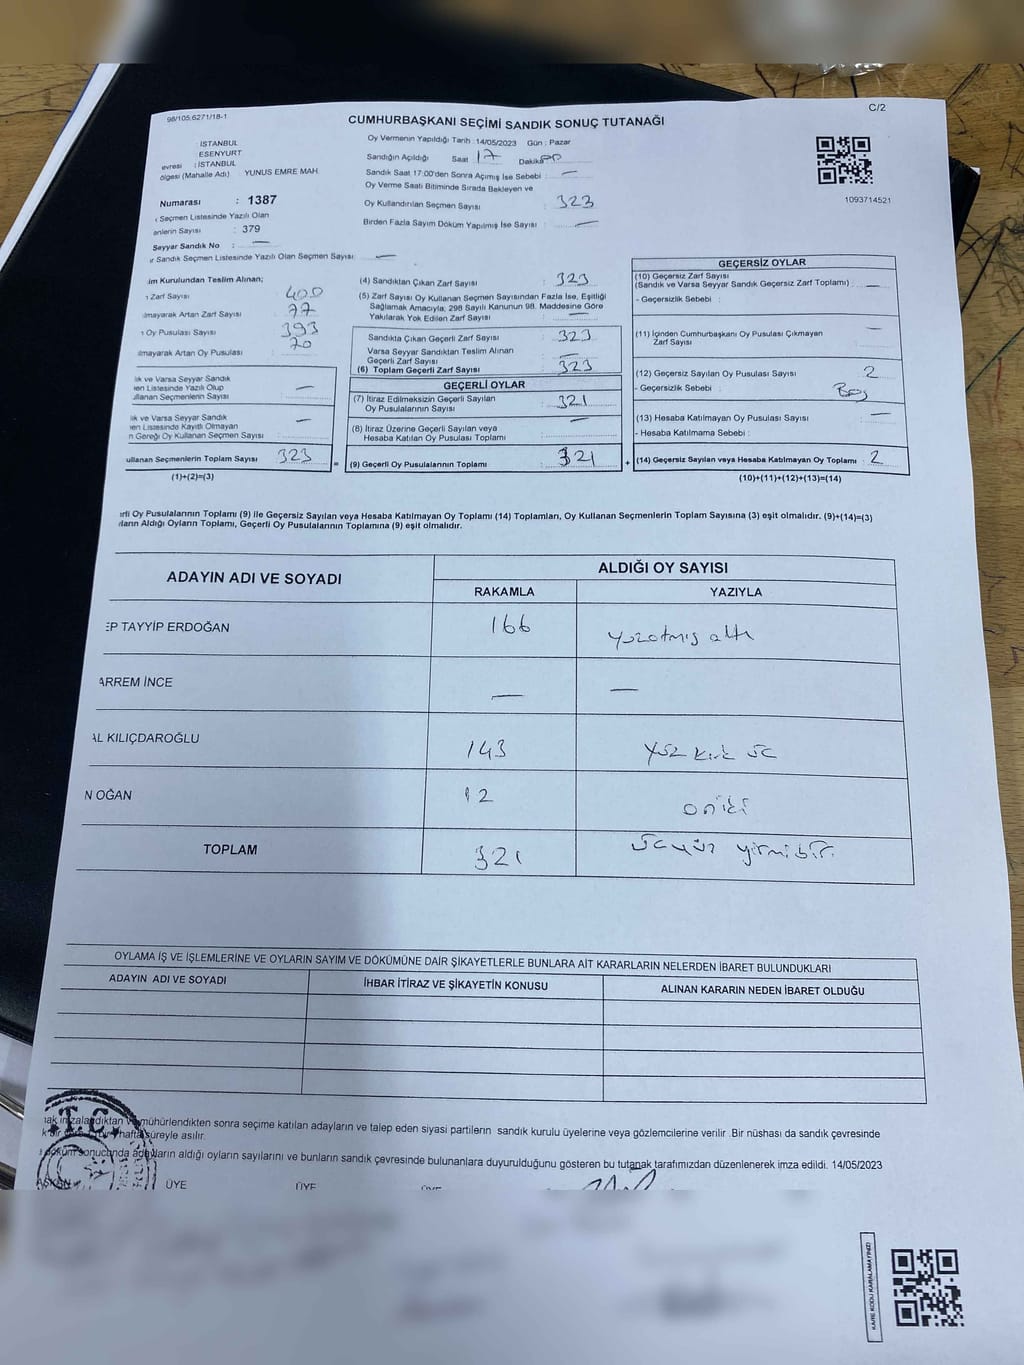 98/105.6271/18-1
C/2
CUMHURBAŞKANI SEÇİMİ SANDIK SONUÇ TUTANAĞI
İSTANBUL
ESENYURT
evresi : İSTANBUL
ölgesi (Mahalle Adı) YUNUS EMRE MAH.
Numarası : 1387
Seçmen Listesinde Yazılı Olan
enlerin Sayısı : 379
Seyyar Sandık No : —
ır Sandık Seçmen Listesinde Yazılı Olan Seçmen Sayısı : —
Oy Vermenin Yapıldığı Tarih : 14/05/2023 Gün : Pazar
Sandığın Açıldığı Saat 17 Dakika 00
Sandık Saat 17:00'den Sonra Açımış İse Sebebi : —
Oy Verme Saati Bitiminde Sırada Bekleyen ve
Oy Kullandırılan Seçmen Sayısı : 323
Birden Fazla Sayım Döküm Yapılmış İse Sayısı : —
1093714521
im Kurulundan Teslim Alınan;
ı Zarf Sayısı : 400
ılmayarak Artan Zarf Sayısı : 77
ı Oy Pusulası Sayısı : 393
ılmayarak Artan Oy Pusulası : 70
lık ve Varsa Seyyar Sandık
en Listesinde Yazılı Olup
ullanan Seçmenlerin Sayısı : —
lık ve Varsa Seyyar Sandık
en Listesinde Kayıtlı Olmayan
n Gereği Oy Kullanan Seçmen Sayısı : —
ullanan Seçmenlerin Toplam Sayısı : 323
(1)+(2)=(3)
(4) Sandıktan Çıkan Zarf Sayısı : 323
(5) Zarf Sayısı Oy Kullanan Seçmen Sayısından Fazla İse, Eşitliği
Sağlamak Amacıyla; 298 Sayılı Kanunun 98. Maddesine Göre
Yakılarak Yok Edilen Zarf Sayısı : —
Sandıkta Çıkan Geçerli Zarf Sayısı : 323
Varsa Seyyar Sandıktan Teslim Alınan
Geçerli Zarf Sayısı : —
(6) Toplam Geçerli Zarf Sayısı : 323
GEÇERLİ OYLAR
(7) İtiraz Edilmeksizin Geçerli Sayılan
Oy Pusulalarının Sayısı : 321
(8) İtiraz Üzerine Geçerli Sayılan veya
Hesaba Katılan Oy Pusulası Toplamı : —
= (9) Geçerli Oy Pusulalarının Toplamı : 321 +
GEÇERSİZ OYLAR
(10) Geçersiz Zarf Sayısı
(Sandık ve Varsa Seyyar Sandık Geçersiz Zarf Toplamı) : —
- Geçersizlik Sebebi :
(11) İçinden Cumhurbaşkanı Oy Pusulası Çıkmayan
Zarf Sayısı : —
(12) Geçersiz Sayılan Oy Pusulası Sayısı : 2
- Geçersizlik Sebebi : Boş
(13) Hesaba Katılmayan Oy Pusulası Sayısı : —
- Hesaba Katılmama Sebebi :
(14) Geçersiz Sayılan veya Hesaba Katılmayan Oy Toplamı : 2
(10)+(11)+(12)+(13)=(14)
rli Oy Pusulalarının Toplamı (9) ile Geçersiz Sayılan veya Hesaba Katılmayan Oy Toplamı (14) Toplamları, Oy Kullanan Seçmenlerin Toplam Sayısına (3) eşit olmalıdır. (9)+(14)=(3)
ların Aldığı Oyların Toplamı, Geçerli Oy Pusulalarının Toplamına (9) eşit olmalıdır.
ADAYIN ADI VE SOYADI
ALDIĞI OY SAYISI
RAKAMLA YAZIYLA
EP TAYYİP ERDOĞAN 166 yüzatmış altı
ARREM İNCE — —
AL KILIÇDAROĞLU 143 yüz kırk üç
N OĞAN 12 oniki
TOPLAM 321 üçyüz yirmibir
OYLAMA İŞ VE İŞLEMLERİNE VE OYLARIN SAYIM VE DÖKÜMÜNE DAİR ŞİKAYETLERLE BUNLARA AİT KARARLARIN NELERDEN İBARET BULUNDUKLARI
ADAYIN ADI VE SOYADI İHBAR İTİRAZ VE ŞİKAYETİN KONUSU ALINAN KARARIN NEDEN İBARET OLDUĞU
T.C.
nak imzalandıktan ve mühürlendikten sonra seçime katılan adayların ve talep eden siyasi partilerin sandık kurulu üyelerine veya gözlemcilerine verilir .Bir nüshası da sandık çevresinde
hafta süreyle asılır.
döküm sonucunda adayların aldığı oyların sayılarını ve bunların sandık çevresinde bulunanlara duyurulduğunu gösteren bu tutanak tarafımızdan düzenlenerek imza edildi. 14/05/2023
AŞKAN ÜYE ÜYE ÜYE
KARE KODU KARALAMAYINIZ!